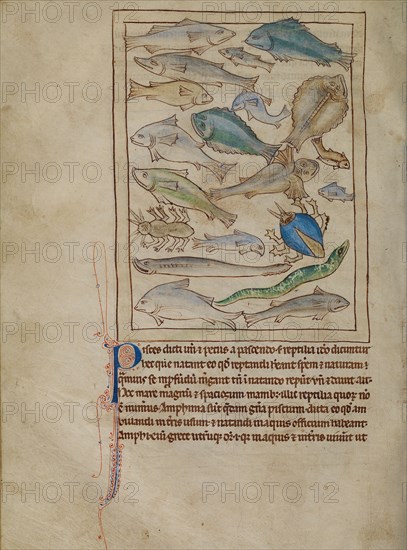 PHOTO12
Pisces dicti unde & pecus a pascendo. & reptilia ideo dicuntur
hec que natant eo quod reptandi habeant speciem & naturam &
quamvis se in profundum mergant tamen in natando repunt. unde & david ait.
Hoc mare magnum & spaciosum manibus. illic reptilia quorum non
est numerus. Amphivia sunt quedam genera piscium. dicta eo quod am
bulandi in terris usum & natandi in aquis officium habeant.
Amphi enim grece utrumque dicitur. quia & in aquis & in terris vivunt ut